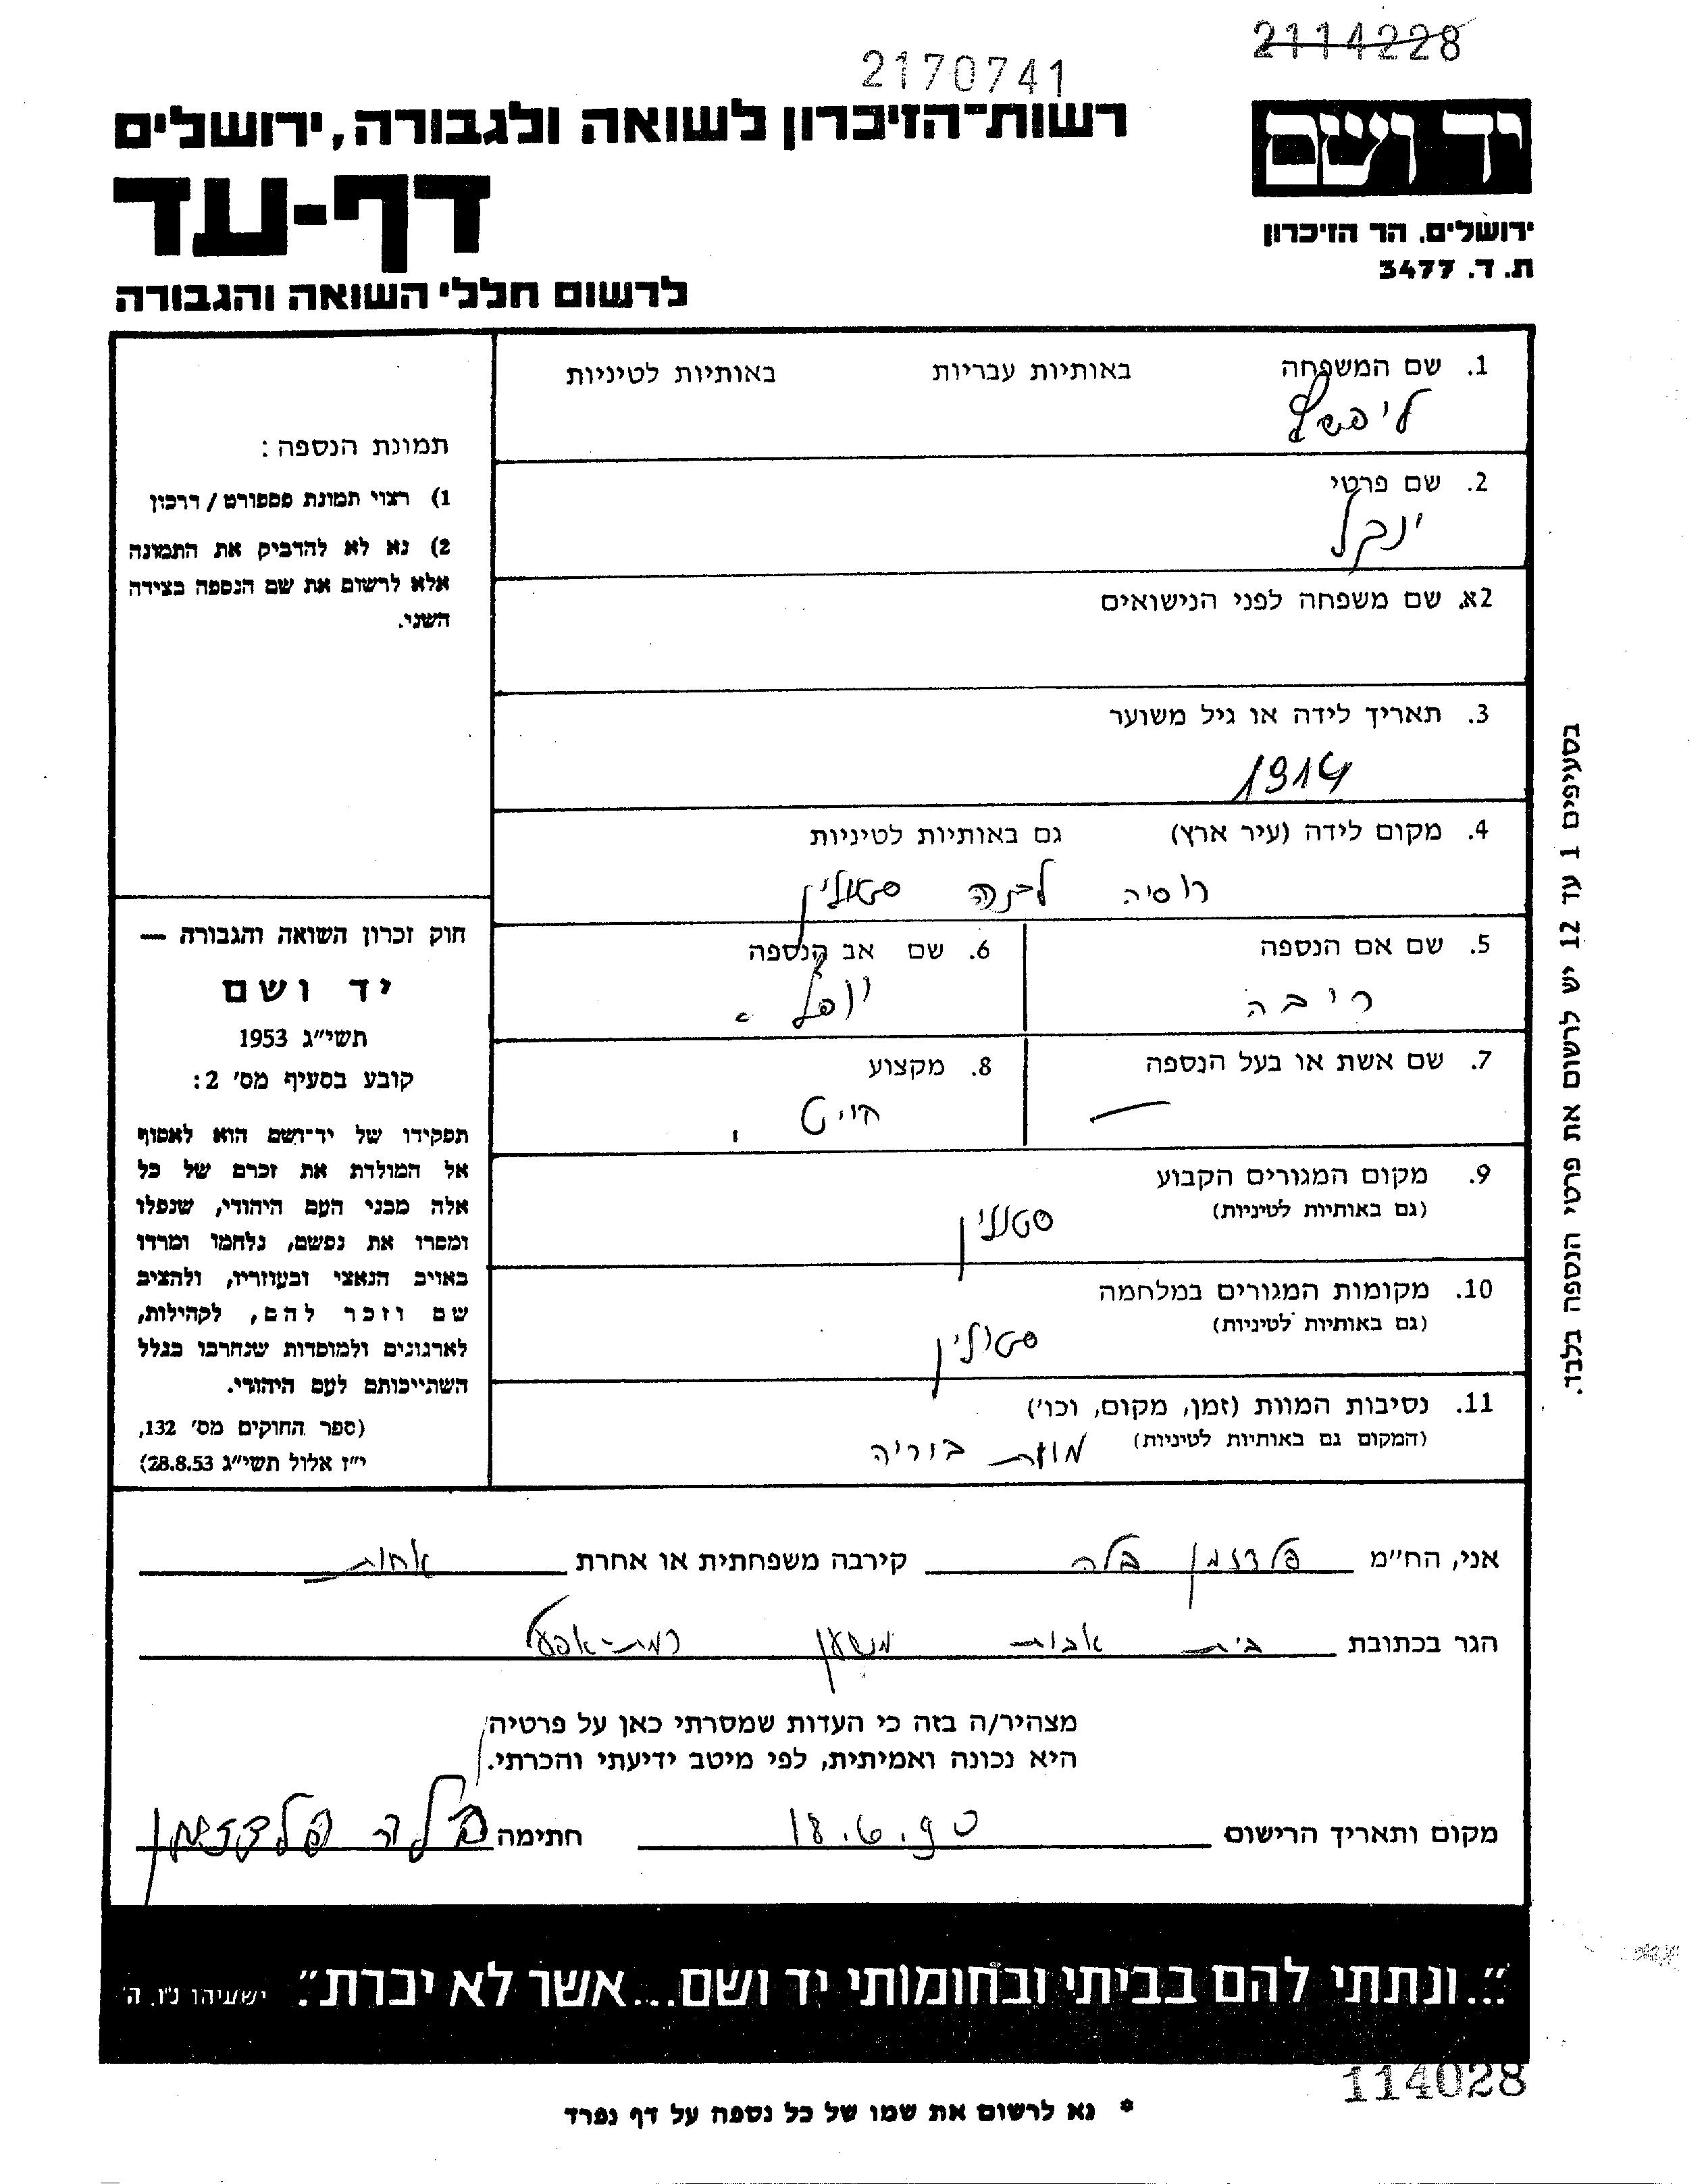 2114228
2170741
יד ושם
רשות־הזיכרון לשואה ולגבורה, ירושלים
דף-עד
ירושלים, הר הזיכרון
ת. ד. 3477
לרשום חללי השואה והגבורה
1. שם המשפחה באותיות עבריות באותיות לטיניות
ליפשץ
2. שם פרטי
ינקל
2א. שם משפחה לפני הנישואים
3. תאריך לידה או גיל משוער
1914
4. מקום לידה (עיר ארץ) גם באותיות לטיניות
רוסיה לבנה סטולין
5. שם אם הנספה
ריבה
6. שם אב הנספה
7. שם אשת או בעל הנספה
—
8. מקצוע
חייט
9. מקום המגורים הקבוע
(גם באותיות לטיניות)
סטולין
10. מקומות המגורים במלחמה
(גם באותיות לטיניות)
סטולין
11. נסיבות המוות (זמן, מקום, וכו')
(המקום גם באותיות לטיניות)
מוות בוריה
תמונת הנספה:
1) רצוי תמונת פספורט / דרכון
2) נא לא להדביק את התמונה
אלא לרשום את שם הנספה בצידה
השני.
חוק זכרון השואה והגבורה —
יד ושם
תשי"ג 1953
קובע בסעיף מס' 2:
תפקידו של יד־ושם הוא לאסוף
אל המולדת את זכרם של כל
אלה מבני העם היהודי, שנפלו
ומסרו את נפשם, נלחמו ומרדו
באויב הנאצי ובעוזריו, ולהציב
שם וזכר להם, לקהילות,
לארגונים ולמוסדות שנחרבו בגלל
השתייכותם לעם היהודי.
(ספר החוקים מס' 132,
י"ז אלול תשי"ג 28.8.53)
בסעיפים 1 עד 12 יש לרשום את פרטי הנספה בלבד.
אני, הח"מ פלדזמן בלה קירבה משפחתית או אחרת אחות
הגר בכתובת בית אבות משען רמת-אפעל
מצהיר/ה בזה כי העדות שמסרתי כאן על פרטיה
היא נכונה ואמיתית, לפי מיטב ידיעתי והכרתי.
מקום ותאריך הרישום 18.6.90 חתימה בלה פלדזמן
"...ונתתי להם בביתי ובחומותי יד ושם...אשר לא יכרת". ישעיהו נ"ו, ה'
114028
* נא לרשום את שמו של כל נספה על דף נפרד